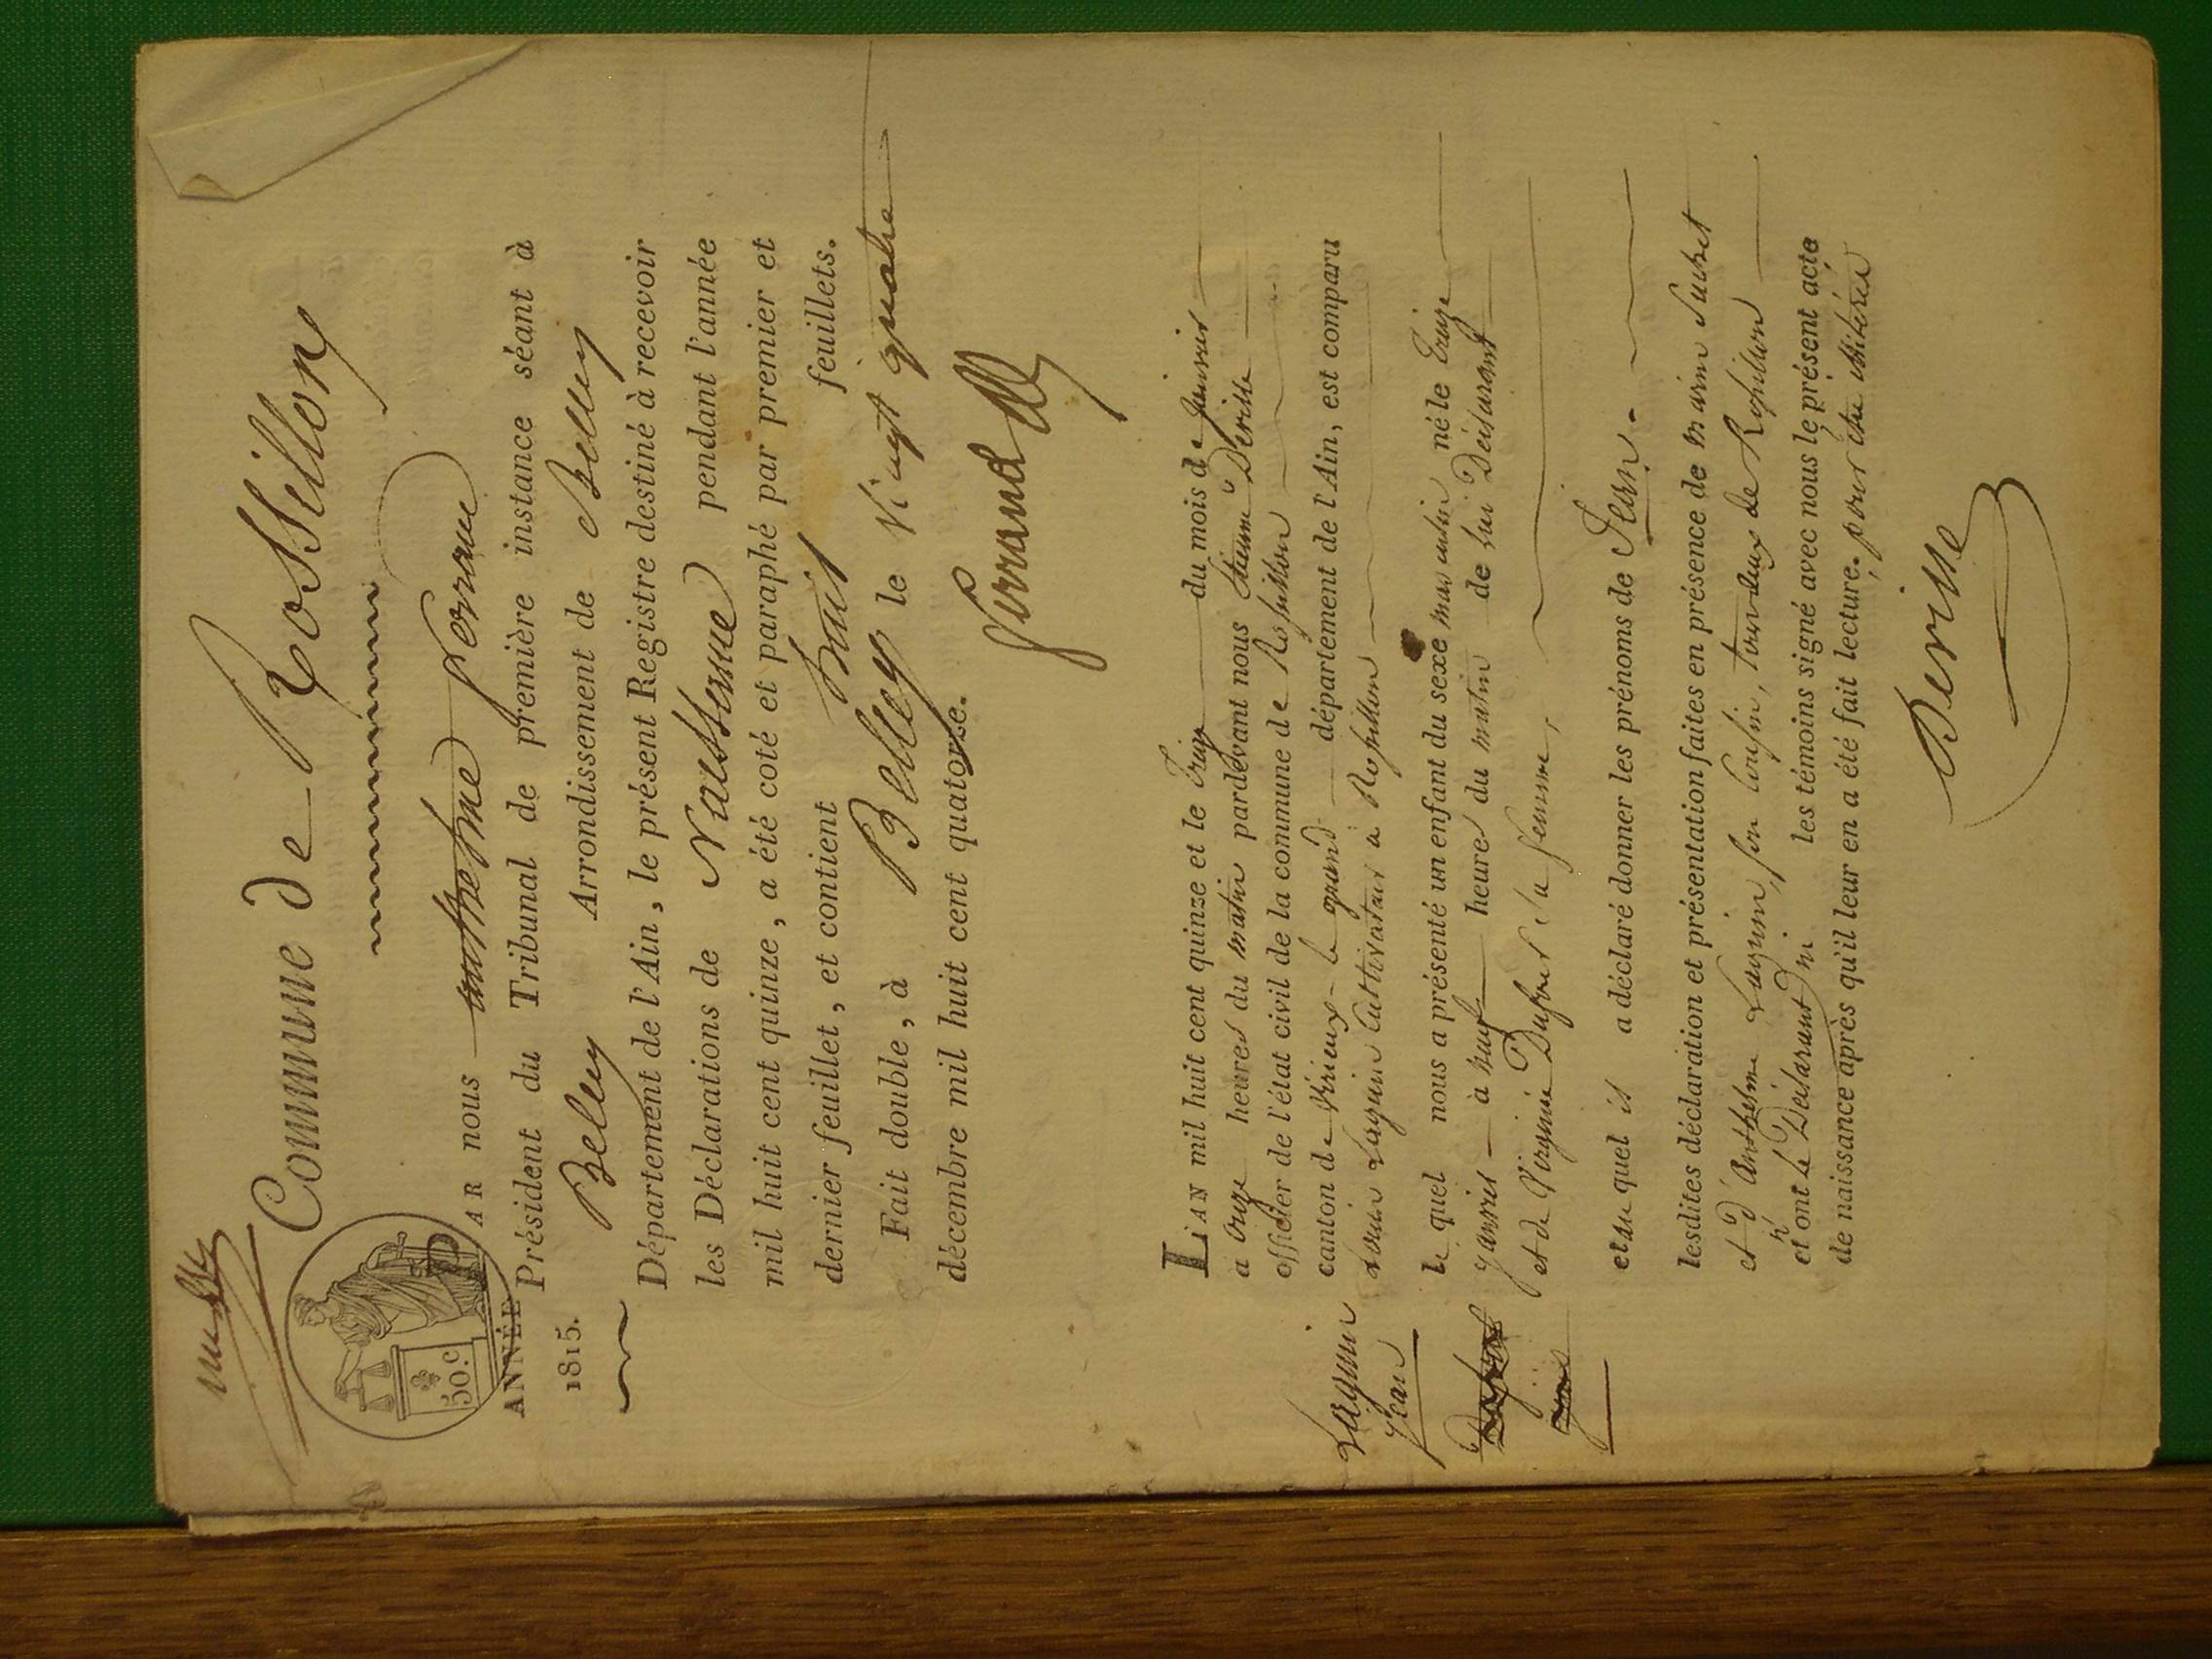 Commune de Rossillon
50.c
ANNÉE
1815.
PAR nous Anthelme Ferrand
Président du Tribunal de première instance séant à
Belley Arrondissement de Belley
Département de l'Ain, le présent Registre destiné à recevoir
les Déclarations de Naissance pendant l'année
mil huit cent quinze, a été coté et paraphé par premier et
dernier feuillet, et contient huit feuillets.
Fait double, à Belley le Vingt quatre
décembre mil huit cent quatorze.
Ferrand
L'AN mil huit cent quinze et le treize du mois de Janvier
a onze heures du matin pardevant nous Etienne Derisse
officier de l'état civil de la commune de Rossillon
canton de Virieux-le grand département de l'Ain, est comparu
Louis Laguin Cultivateur à Rossillon
le quel nous a présenté un enfant du sexe masculin né le treize
Janvier à neuf heures du matin de lui Déclarant
et de Virginie Dufour sa femme,
et au quel il a déclaré donner les prénoms de Jean.
lesdites déclaration et présentation faites en présence de
et d'Anthelme Laguin, son Cousin, tous deux de Rossillon
et ont le Déclarant ni les témoins signé avec nous le présent acte
de naissance après qu'il leur en a été fait lecture. pour être illitérés
Derisse
Laguin
Jean